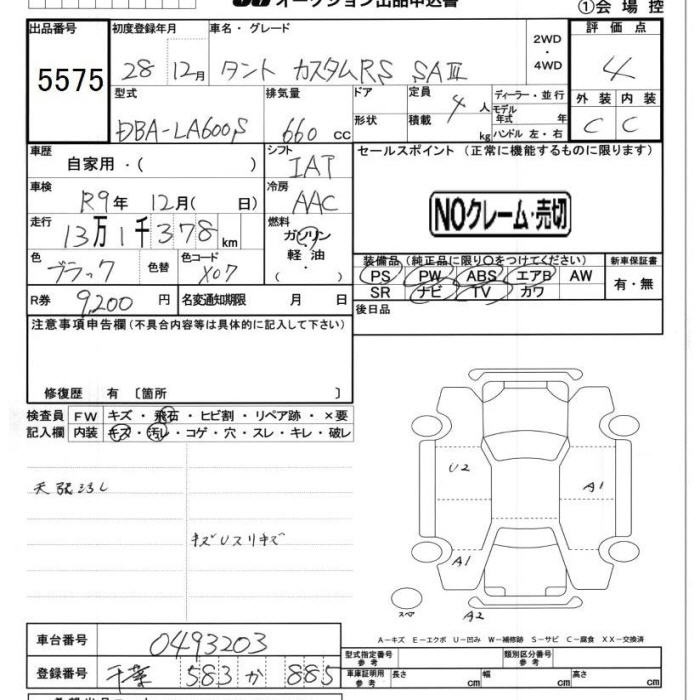 オークション出品申込書
①会場控
出品番号 5575
初度登録年月 28 12月
車名・グレード タント カスタムRS SAⅢ
2WD・4WD
評価点 4
外装 C 内装 C
型式 DBA-LA600S
排気量 660 cc
ドア形状
定員 4人
積載 kg
ディーラー・並行
モデル年式 年
ハンドル 左・右
車歴 自家用・( )
シフト IAT
セールスポイント (正常に機能するものに限ります)
NOクレーム・売切
車検 R9年 12月( 日)
冷房 AAC
走行 13万1千378km
燃料 ガソリン 軽油・( )
色 ブラック 色替
色コード X07
装備品 (純正品に限り○をつけてください)
PS PW ABS エアB AW
SR ナビ TV カワ
新車保証書 有・無
R券 9,200円
名変通知期限 月 日
後日品
注意事項申告欄(不具合内容等は具体的に記入して下さい)
修復歴 有 〔箇所 〕
検査員記入欄
FW キズ・飛石・ヒビ割・リペア跡・×要
内装 キズ・汚レ・コゲ・穴・スレ・キレ・破レ
天張ヨゴレ
キズUスリキズ
U2
A1
A1
スペア
A2
A－キズ E－エクボ U－凹み W－補修跡 S－サビ C－腐食 XX－交換済
車台番号 0493203
登録番号 千葉 583 か 885
型式指定番号 参考
類別区分番号 参考
車庫証明用 参考 長さ cm 幅 cm 高さ cm